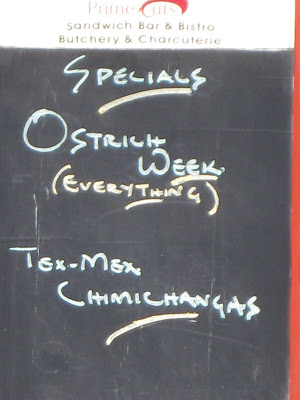 Prime Cuts
Sandwich Bar & Bistro
Butchery & Charcuterie
SPECIALS
OSTRICH
WEEK.
(EVERYTHING)
TEX-MEX
CHIMICHANGAS